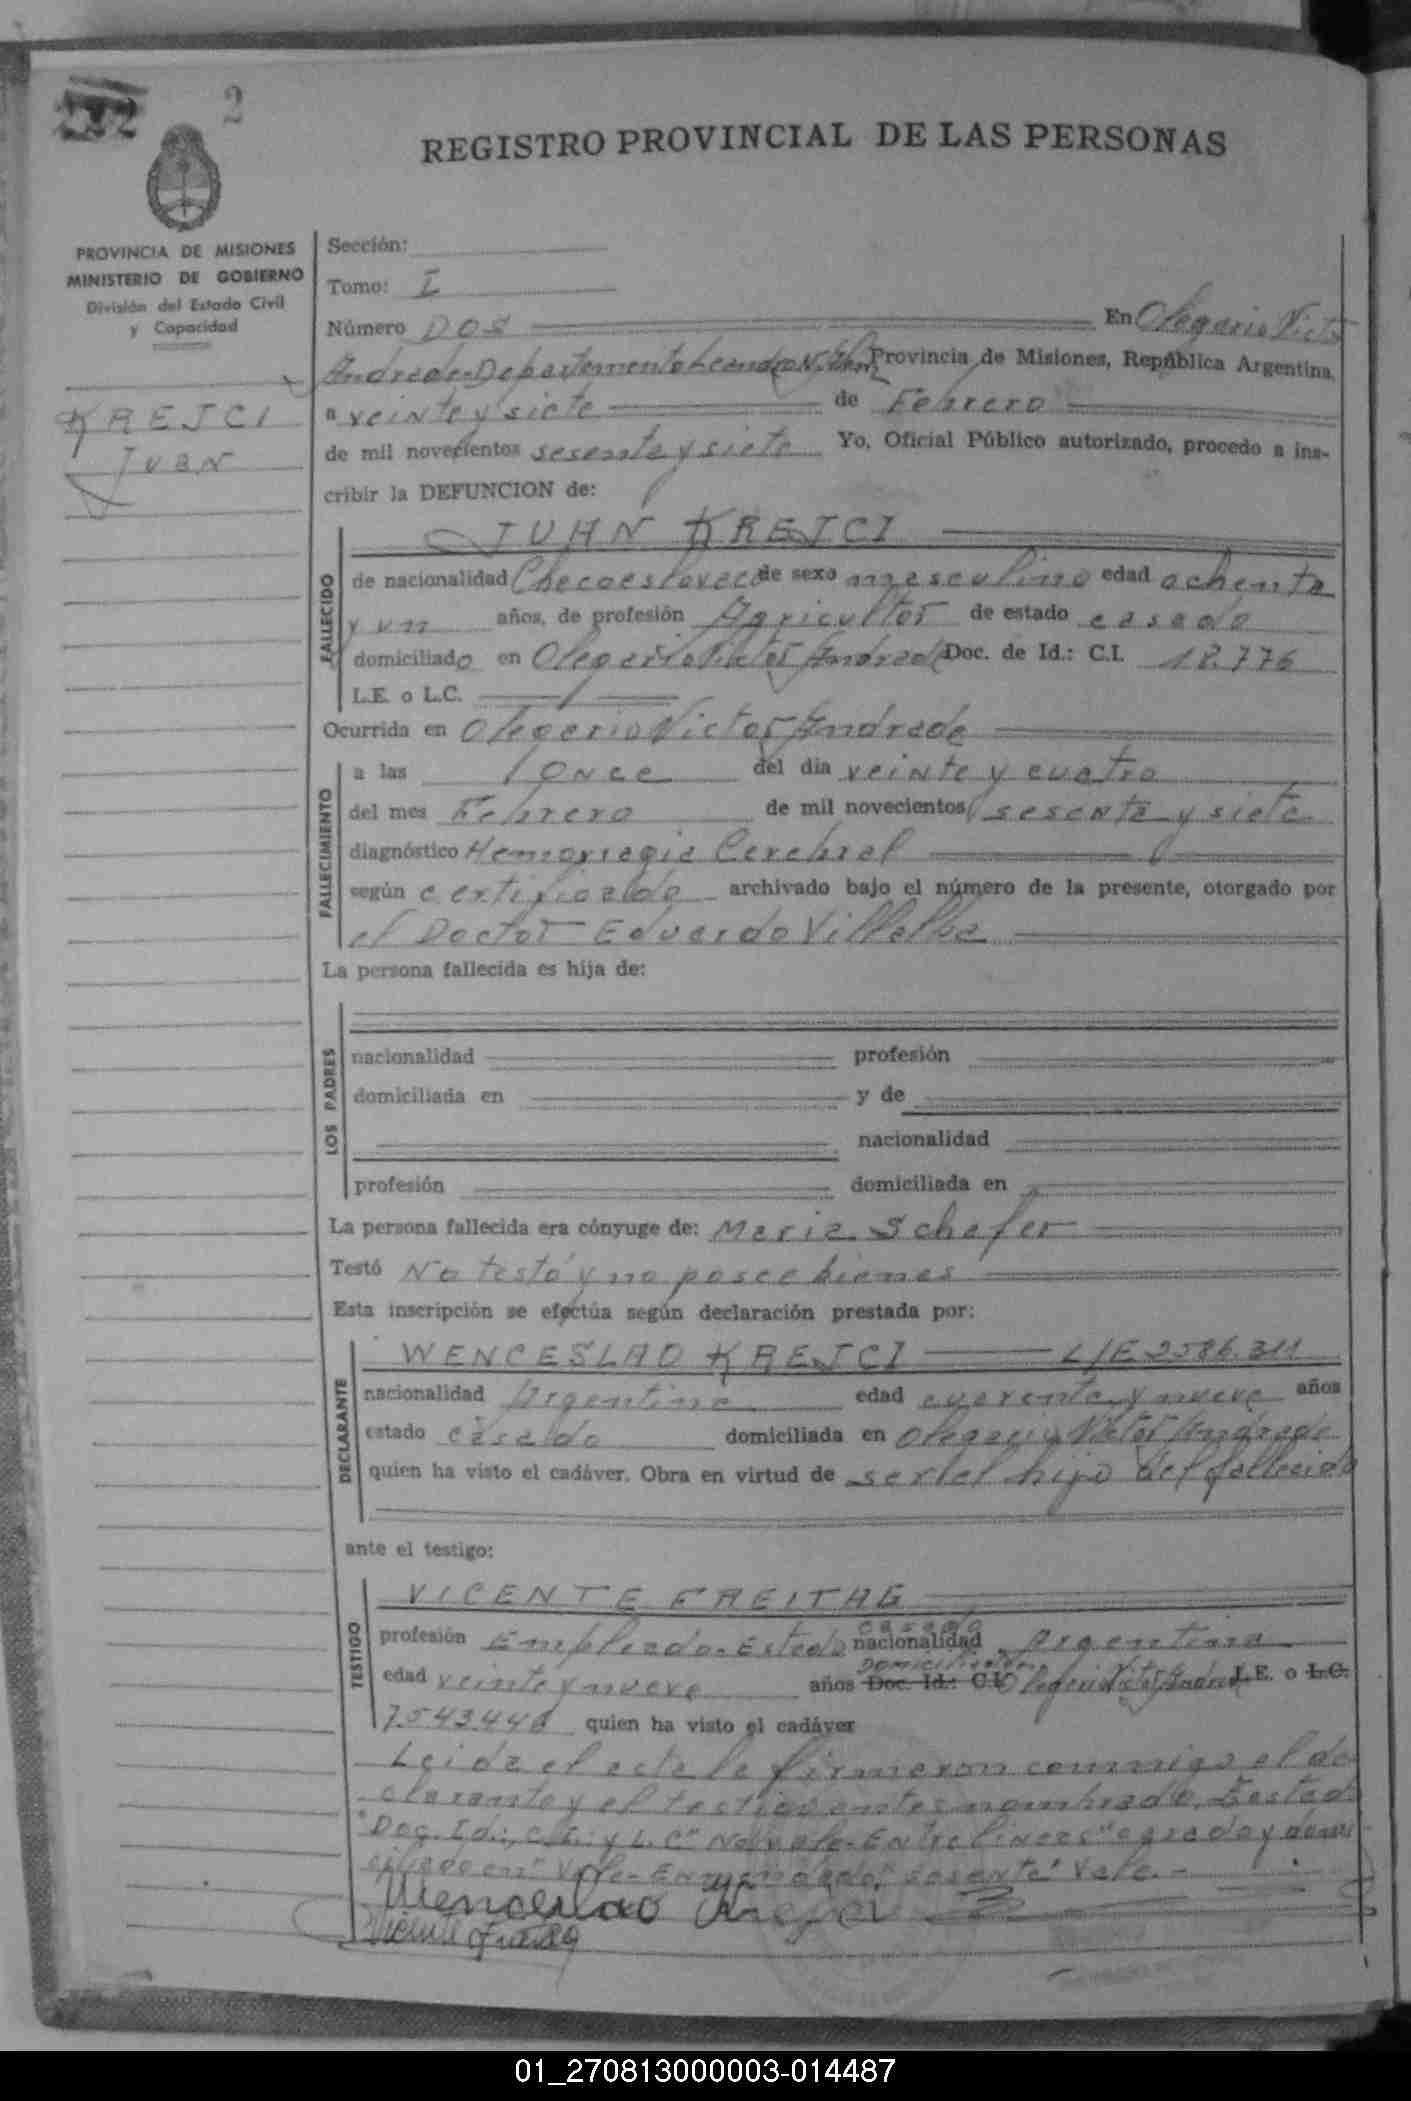 2
REGISTRO PROVINCIAL DE LAS PERSONAS
PROVINCIA DE MISIONES
MINISTERIO DE GOBIERNO
División del Estado Civil
y Capacidad
KREJCI
JUAN
Sección:
Tomo: I
Número DOS En Olegario Victor
Andrade-Departamento Leandro N. Alem Provincia de Misiones, República Argentina,
a veinte y siete de Febrero
de mil novecientos sesenta y siete Yo, Oficial Público autorizado, procedo a ins-
cribir la DEFUNCION de:
JUAN KREJCI
FALLECIDO
de nacionalidad Checoeslovaco de sexo masculino edad ochenta
y un años, de profesión Agricultor de estado casado
domiciliado en Olegario Victor Andrade Doc. de Id.: C.I. 12.776
L.E. o L.C.
Ocurrida en Olegario Victor Andrade
FALLECIMIENTO
a las once del dia veinte y cuatro
del mes Febrero de mil novecientos sesenta y siete
diagnóstico Hemorragia Cerebral
según certificado archivado bajo el número de la presente, otorgado por
el Doctor Eduardo Villalba
La persona fallecida es hija de:
LOS PADRES
nacionalidad profesión
domiciliada en y de
nacionalidad
profesión domiciliada en
La persona fallecida era cónyuge de: Maria Schafer
Testó No testó y no posee bienes
Esta inscripción se efectúa según declaración prestada por:
DECLARANTE
WENCESLAO KREJCI L/E 2586.311
nacionalidad Argentina edad cuarenta y nueve años
estado casado domiciliada en Olegario Victor Andrade
quien ha visto el cadáver. Obra en virtud de ser el hijo del fallecido
ante el testigo:
TESTIGO
VICENTE FREITAG
casado
profesión Empleado-Estado nacionalidad Argentina
domiciliado en
edad veinte y nueve años Doc. Id.: C.I. Olegario Victor Andrade L.E. o L.C.
7.543.440 quien ha visto el cadáver
Leida el acta la firmaron conmigo el de-
clarante y el testigo antes nombrado. Testado
"Doc. Id.:, C.I.: y L.C" No vale-Entre lineas "casado y domi
ciliado en" Vale-Enmendado, "sesenta" Vale.-
Wenceslao Krejci
Vicente Freitag
01_270813000003-014487